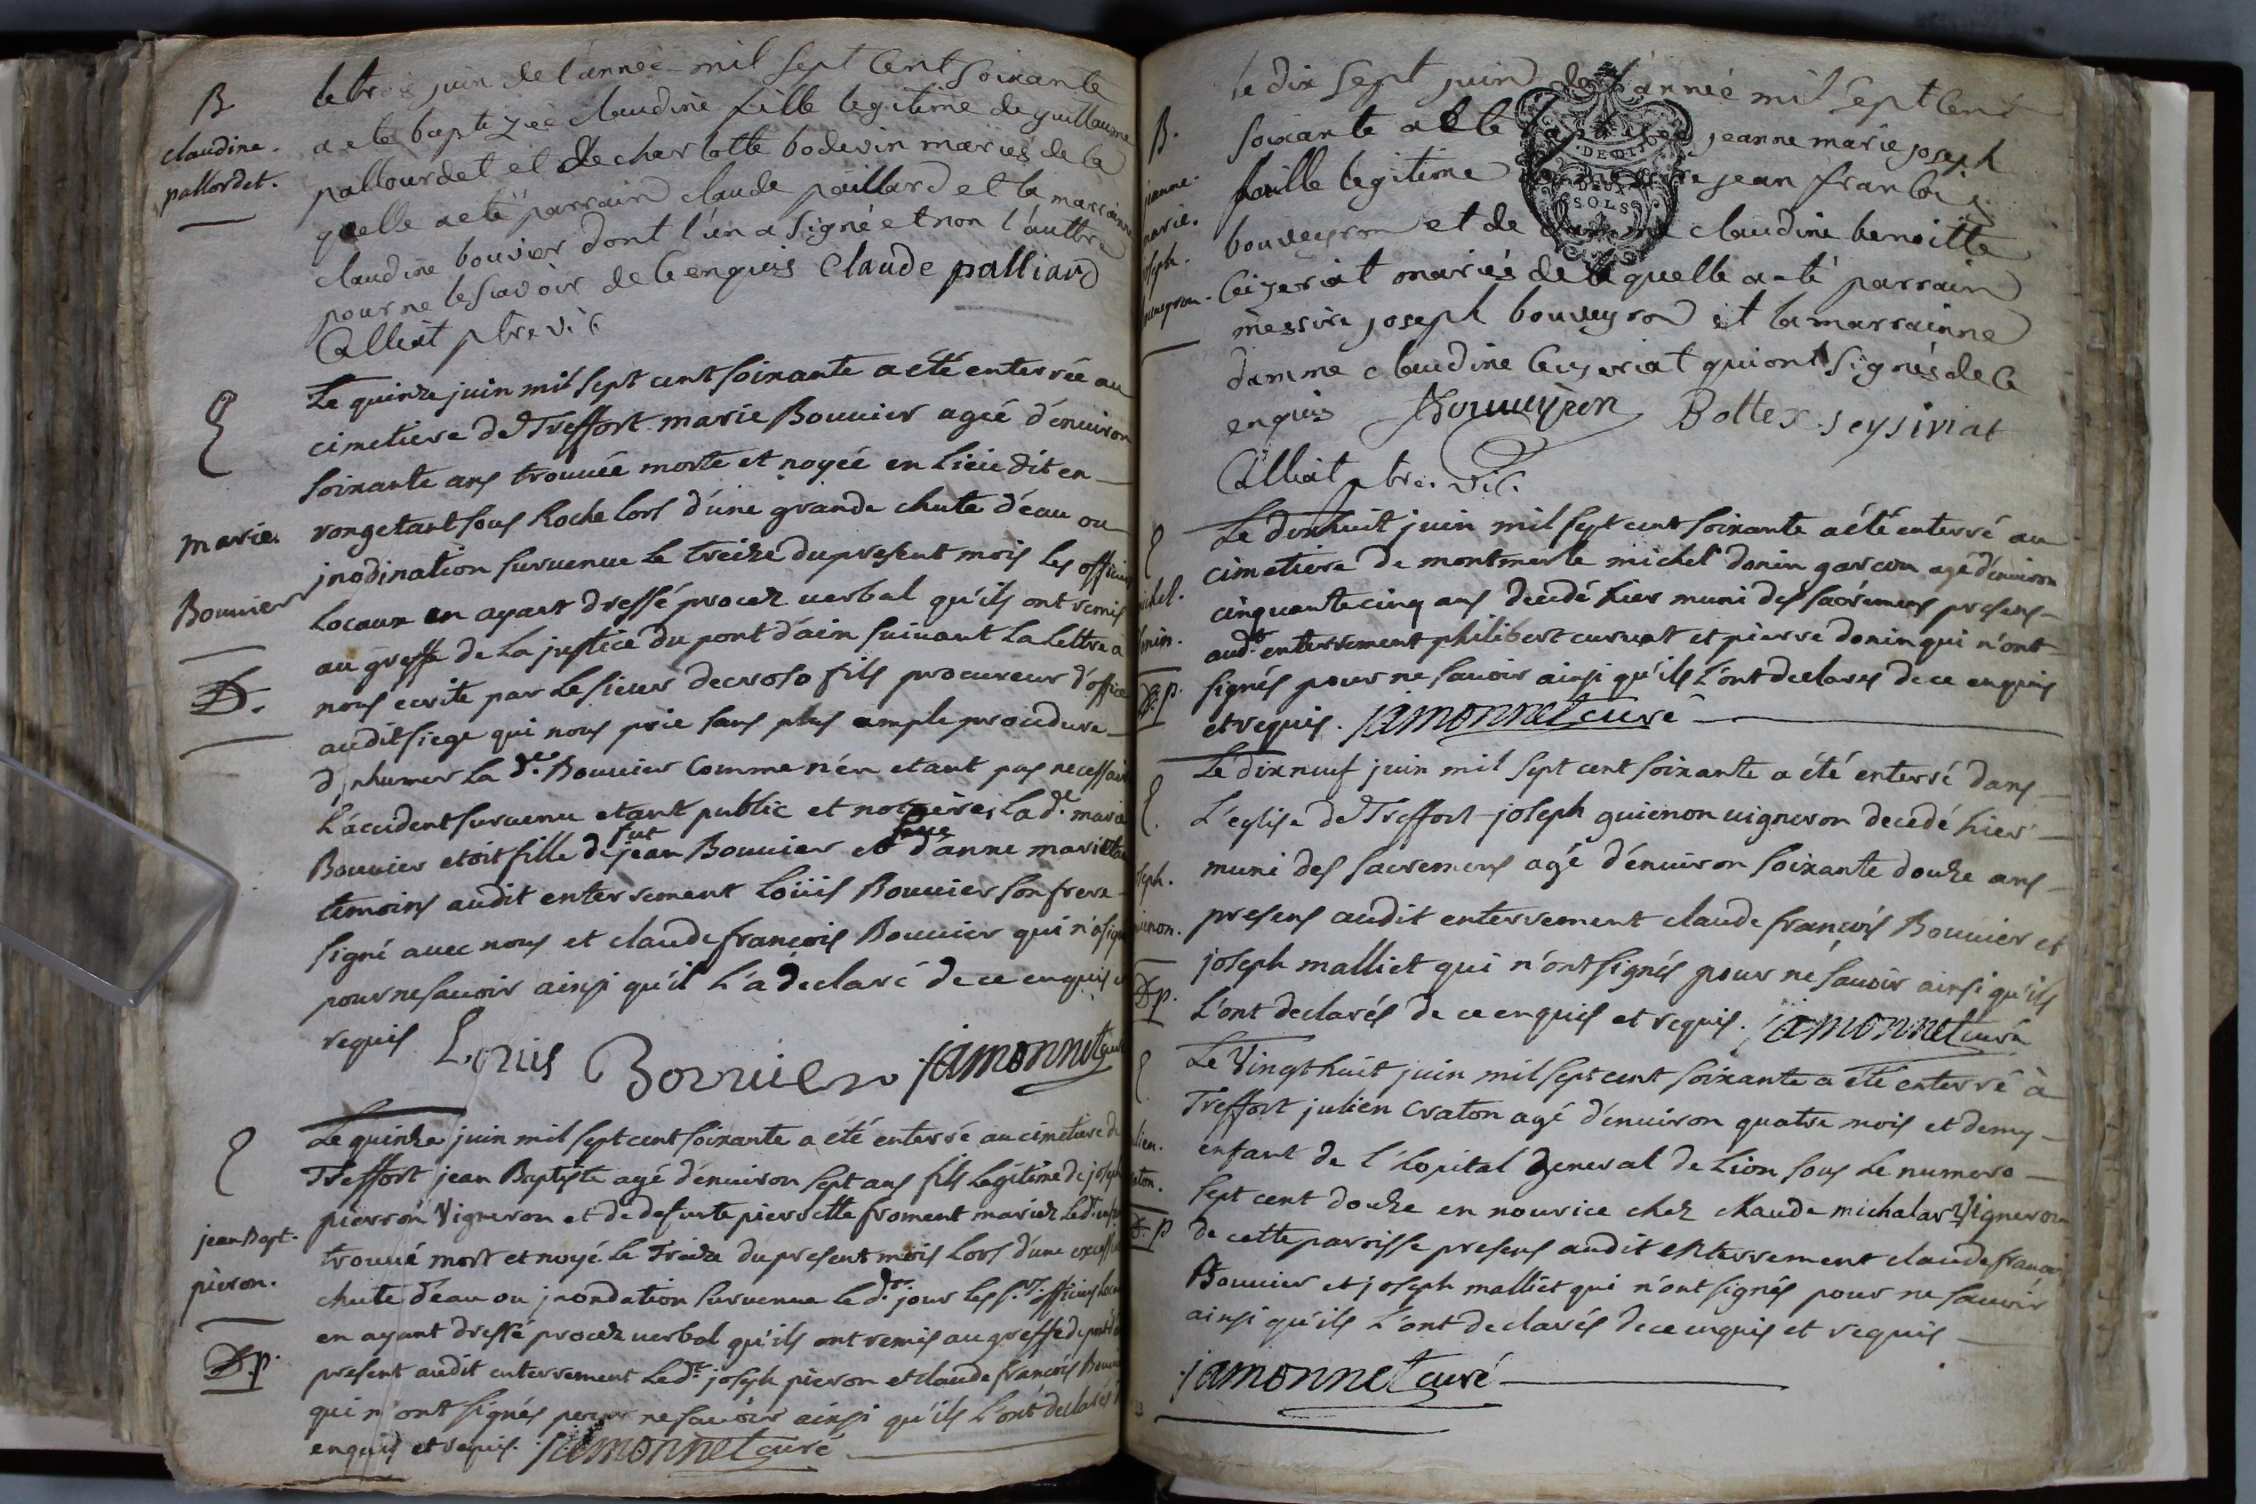 B
claudine.
pallordet.
le trois juin de l'année mil sept cent soixante
a ete baptizeé claudine fille legitime de guillaume
pallourdet et de charlotte bodevin mariés de la
quelle a eté parrain claude paillard et la marrainne
claudine bouvier dont l'un a signé et non l'auttre
pour ne le scavoir de ce enquis Claude palliard
Alliat ptre vic
E
marie
Bouuier
D.
Le quinze juin mil sept cent soixante a été enterrée au
cimetiere de Treffort marie Bouuier ageé d'enuiron
soixante ans trouuée morte et noyeé en lieu dit en
rongetant sous Roche lors d'une grande chute d'eau ou
jnodination suruenue le treize du present mois les officiers
locaux en ayant dressé procez uerbal qu'ils ont remis
au greffe de la justice du pont d'ain suiuant la lettre a
nous ecrite par le sieur decroso fils procureur d'office
audit siege qui nous prie sans plus ample procedure
d'jnhumer la de. Bouuier comme n'en etant pas necessaire
l'accident suruenu etant public et notoire; la de. marie
Bouuier etoit fille de fut jean Bouuier et d'anne
temoins audit enterrement Loüis Bouuier son frere
signé auec nous et claude francois Bouuier qui n'a signé
pour ne sauoir ainsi qu'il l'a declaré de ce enquis et
requis Louis Bouuier jamonnet curé
E
jean Bapt.
pieron.
D.p.
Le quinze juin mil sept cent soixante a été enterré au cimetiere de
Treffort jean Baptiste agé d'enuiron sept ans fils legitime de joseph
pierron Vigneron et de defunte pierrette froment mariez le dt. enfant
trouué mort et noyé le Treize du present mois lors d'une excessiue
chute d'eau ou jnondation suruenue le dt. jour les srs. officiers locaux
en ayant dressé procez uerbal qu'ils ont remis au greffe de pont d'ain
present audit enterrement le dt. joseph pieron et claude francois Bouuier
qui n'ont signés pour ne sauoir ainsi qu'ils l'ont declarés
enquis et requis. jamonnet curé
B.
jeanne.
marie.
joseph.
bouueyron.
le dix sept juin de l'anneé mil sept cent
soixante a ete baptiseé jeanne marie joseph
faille legitime de messire jean francois
bouveyron et de damme claudine benoitte
ceizeriat mariés de la quelle a eté parrain
messire joseph bouveyron et la marrainne
damme claudine ceizeriat qui ont signés de ce
enquis Bouueyron Bottex seysiriat
Alliat ptre. vic.
DEUX
SOLS
E
michel.
donin.
D.p.
Le dixhuit juin mil sept cent soixante a été enterré au
cimetiere de montmerle michel donin garcon agé d'enuiron
cinquante cinq ans decedé hier muni des sacremens presens
audt. enterrement philibert curuat et pierre donin qui n'ont
signés pour ne sauoir ainsi qu'ils l'ont declarés de ce enquis
et requis. jamonnet curé
E
joseph.
guienon.
D.p.
Le dix neuf juin mil sept cent soixante a été enterré dans
L'eglise de Treffort joseph guienon uigneron decedé hier
muni des sacremens agé d'enuiron soixante douze ans
presens audit enterrement claude francois Bouuier et
joseph malliet qui n'ont signés pour ne sauoir ainsi qu'ils
l'ont declarés de ce enquis et requis. jamonnet curé
E
julien.
craton.
D.p
Le Vingt huit juin mil sept cent soixante a été enterré à
Treffort julien craton agé d'enuiron quatre mois et demy
enfant de l'hopital general de Lion sous le numero
sept cent douze en nourice chez claude michalar Vigneron
de cette paroisse presens audit enterrement claude francois
Bouuier et joseph malliet qui n'ont signés pour ne sauoir
ainsi qu'ils l'ont declarés de ce enquis et requis
jamonnet curé